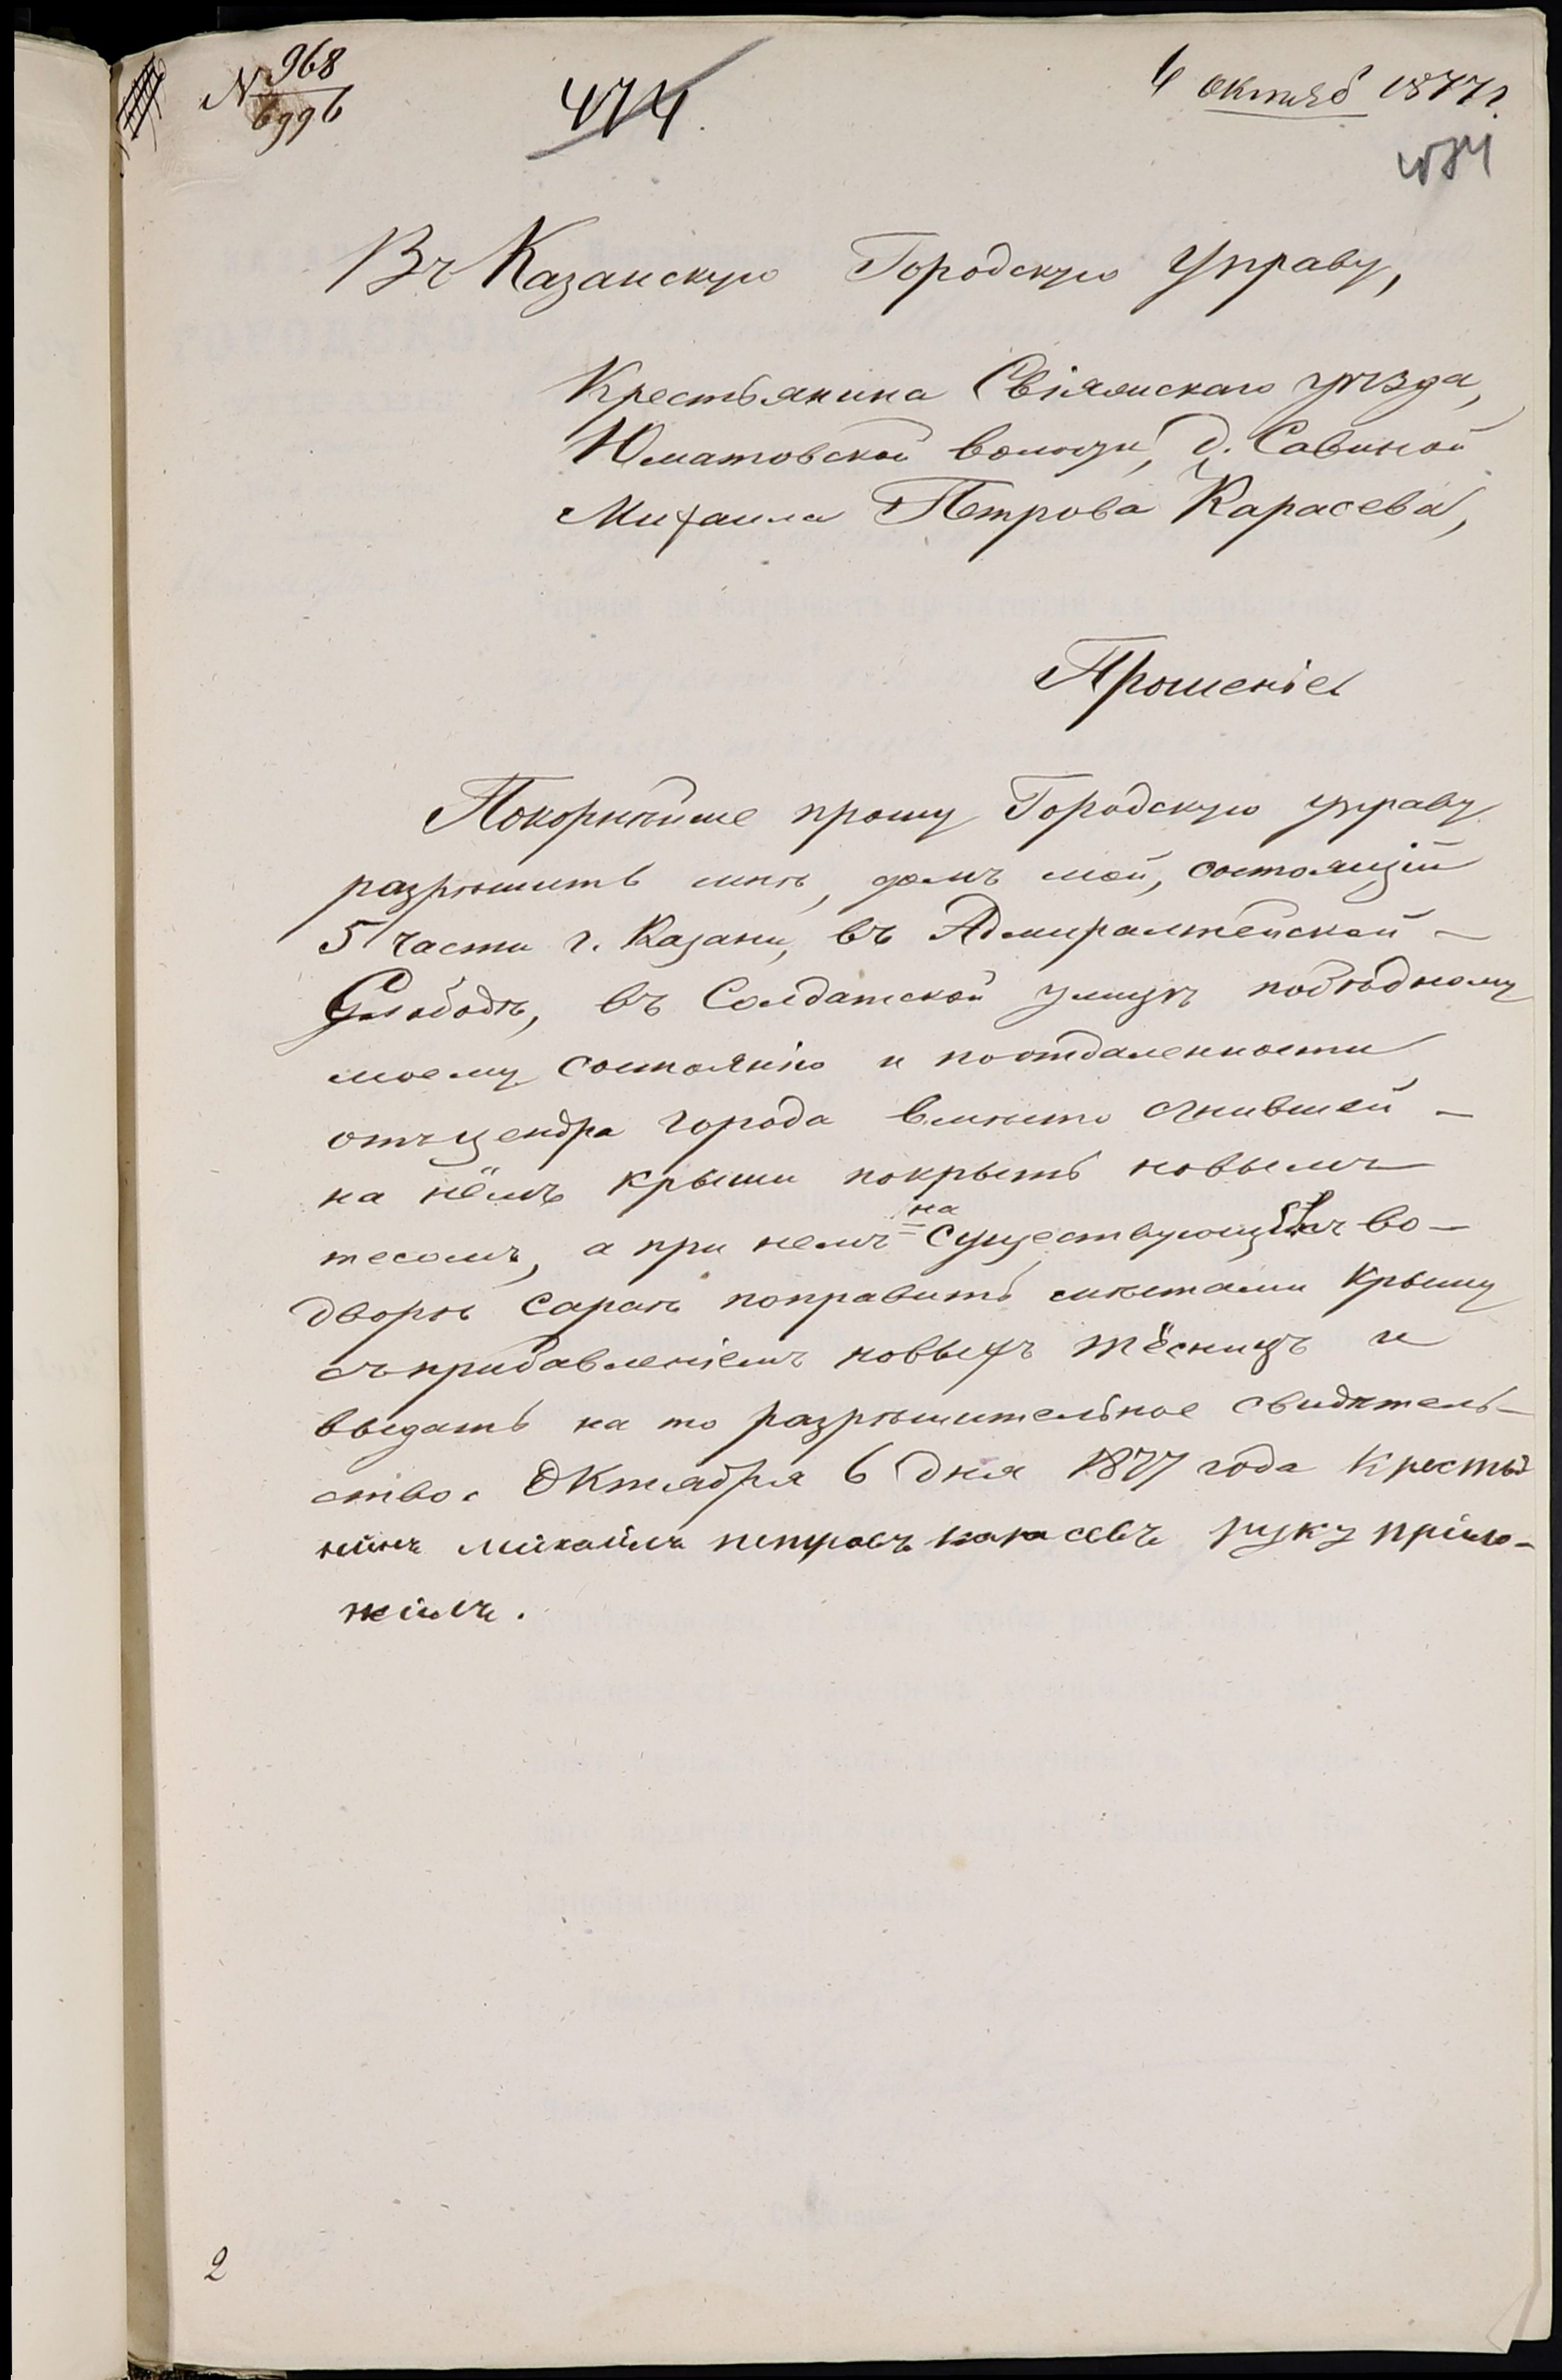 № 968
6996
474.
6 октяб 1877 г.
474
Въ Казанскую Городскую Управу,
Крестьянина Свіяжскаго уѣзда,
Юматовской волости, д. Савиной
Михаила Петрова Карасева,
Прошеніе
Покорнѣйше прошу Городскую управу
разрѣшить мнѣ, домъ мой, состоящій
5 части г. Казани, въ Адмиралтейской -
Слободѣ, въ Солдатской улицѣ побѣдному
моему состоянію и поотдаленности
отъцендра города вмѣсто сгнившей -
на нёмъ крыши покрыть новымъ
тесомъ, а при немъ на существующимъ во-
дворѣ сараѣ поправить мѣстами крышу
съприбавленіемъ новыхъ тёсницъ и
выдать на то разрѣшительное свидѣтель-
ство. Октября 6 дня 1877 года Крестья
нинъ михайлъ петровъ карасевъ руку прило-
жилъ.
2